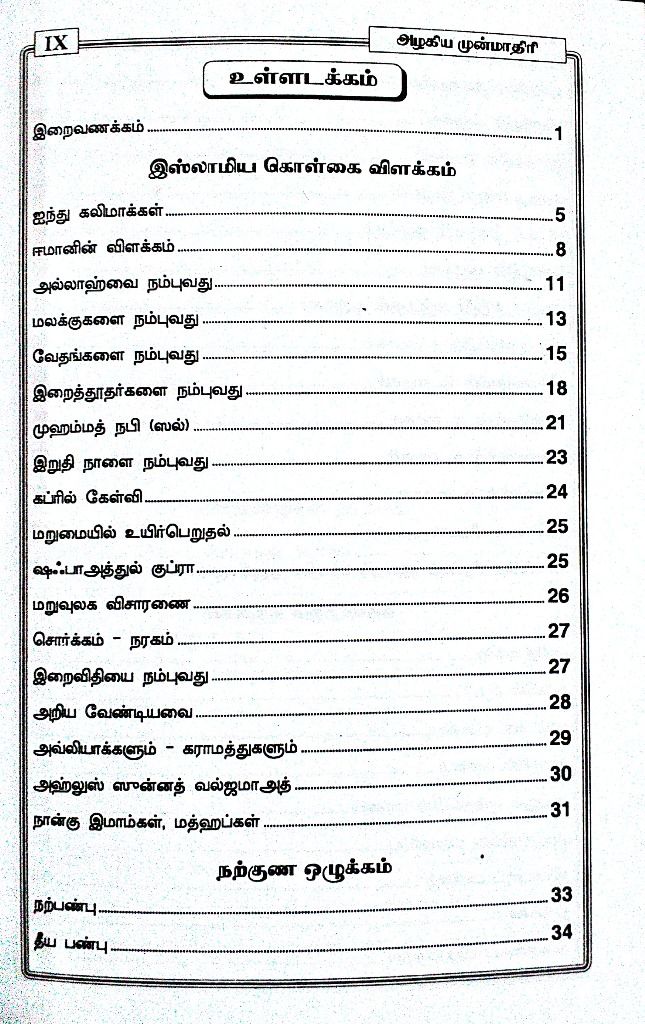 IX
அழகிய முன்மாதிரி
உள்ளடக்கம்
இறைவணக்கம் 1
இஸ்லாமிய கொள்கை விளக்கம்
ஐந்து கலிமாக்கள் 5
ஈமானின் விளக்கம் 8
அல்லாஹ்வை நம்புவது 11
மலக்குகளை நம்புவது 13
வேதங்களை நம்புவது 15
இறைத்தூதர்களை நம்புவது 18
முஹம்மத் நபி (ஸல்) 21
இறுதி நாளை நம்புவது 23
கப்ரில் கேள்வி 24
மறுமையில் உயிர்பெறுதல் 25
ஷஃபாஅத்துல் குப்ரா 25
மறுவுலக விசாரணை 26
சொர்க்கம் - நரகம் 27
இறைவிதியை நம்புவது 27
அறிய வேண்டியவை 28
அவ்லியாக்களும் - கராமத்துகளும் 29
அஹ்லுஸ் ஸுன்னத் வல்ஜமாஅத் 30
நான்கு இமாம்கள், மத்ஹப்கள் 31
நற்குண ஒழுக்கம்
நற்பண்பு 33
தீய பண்பு 34